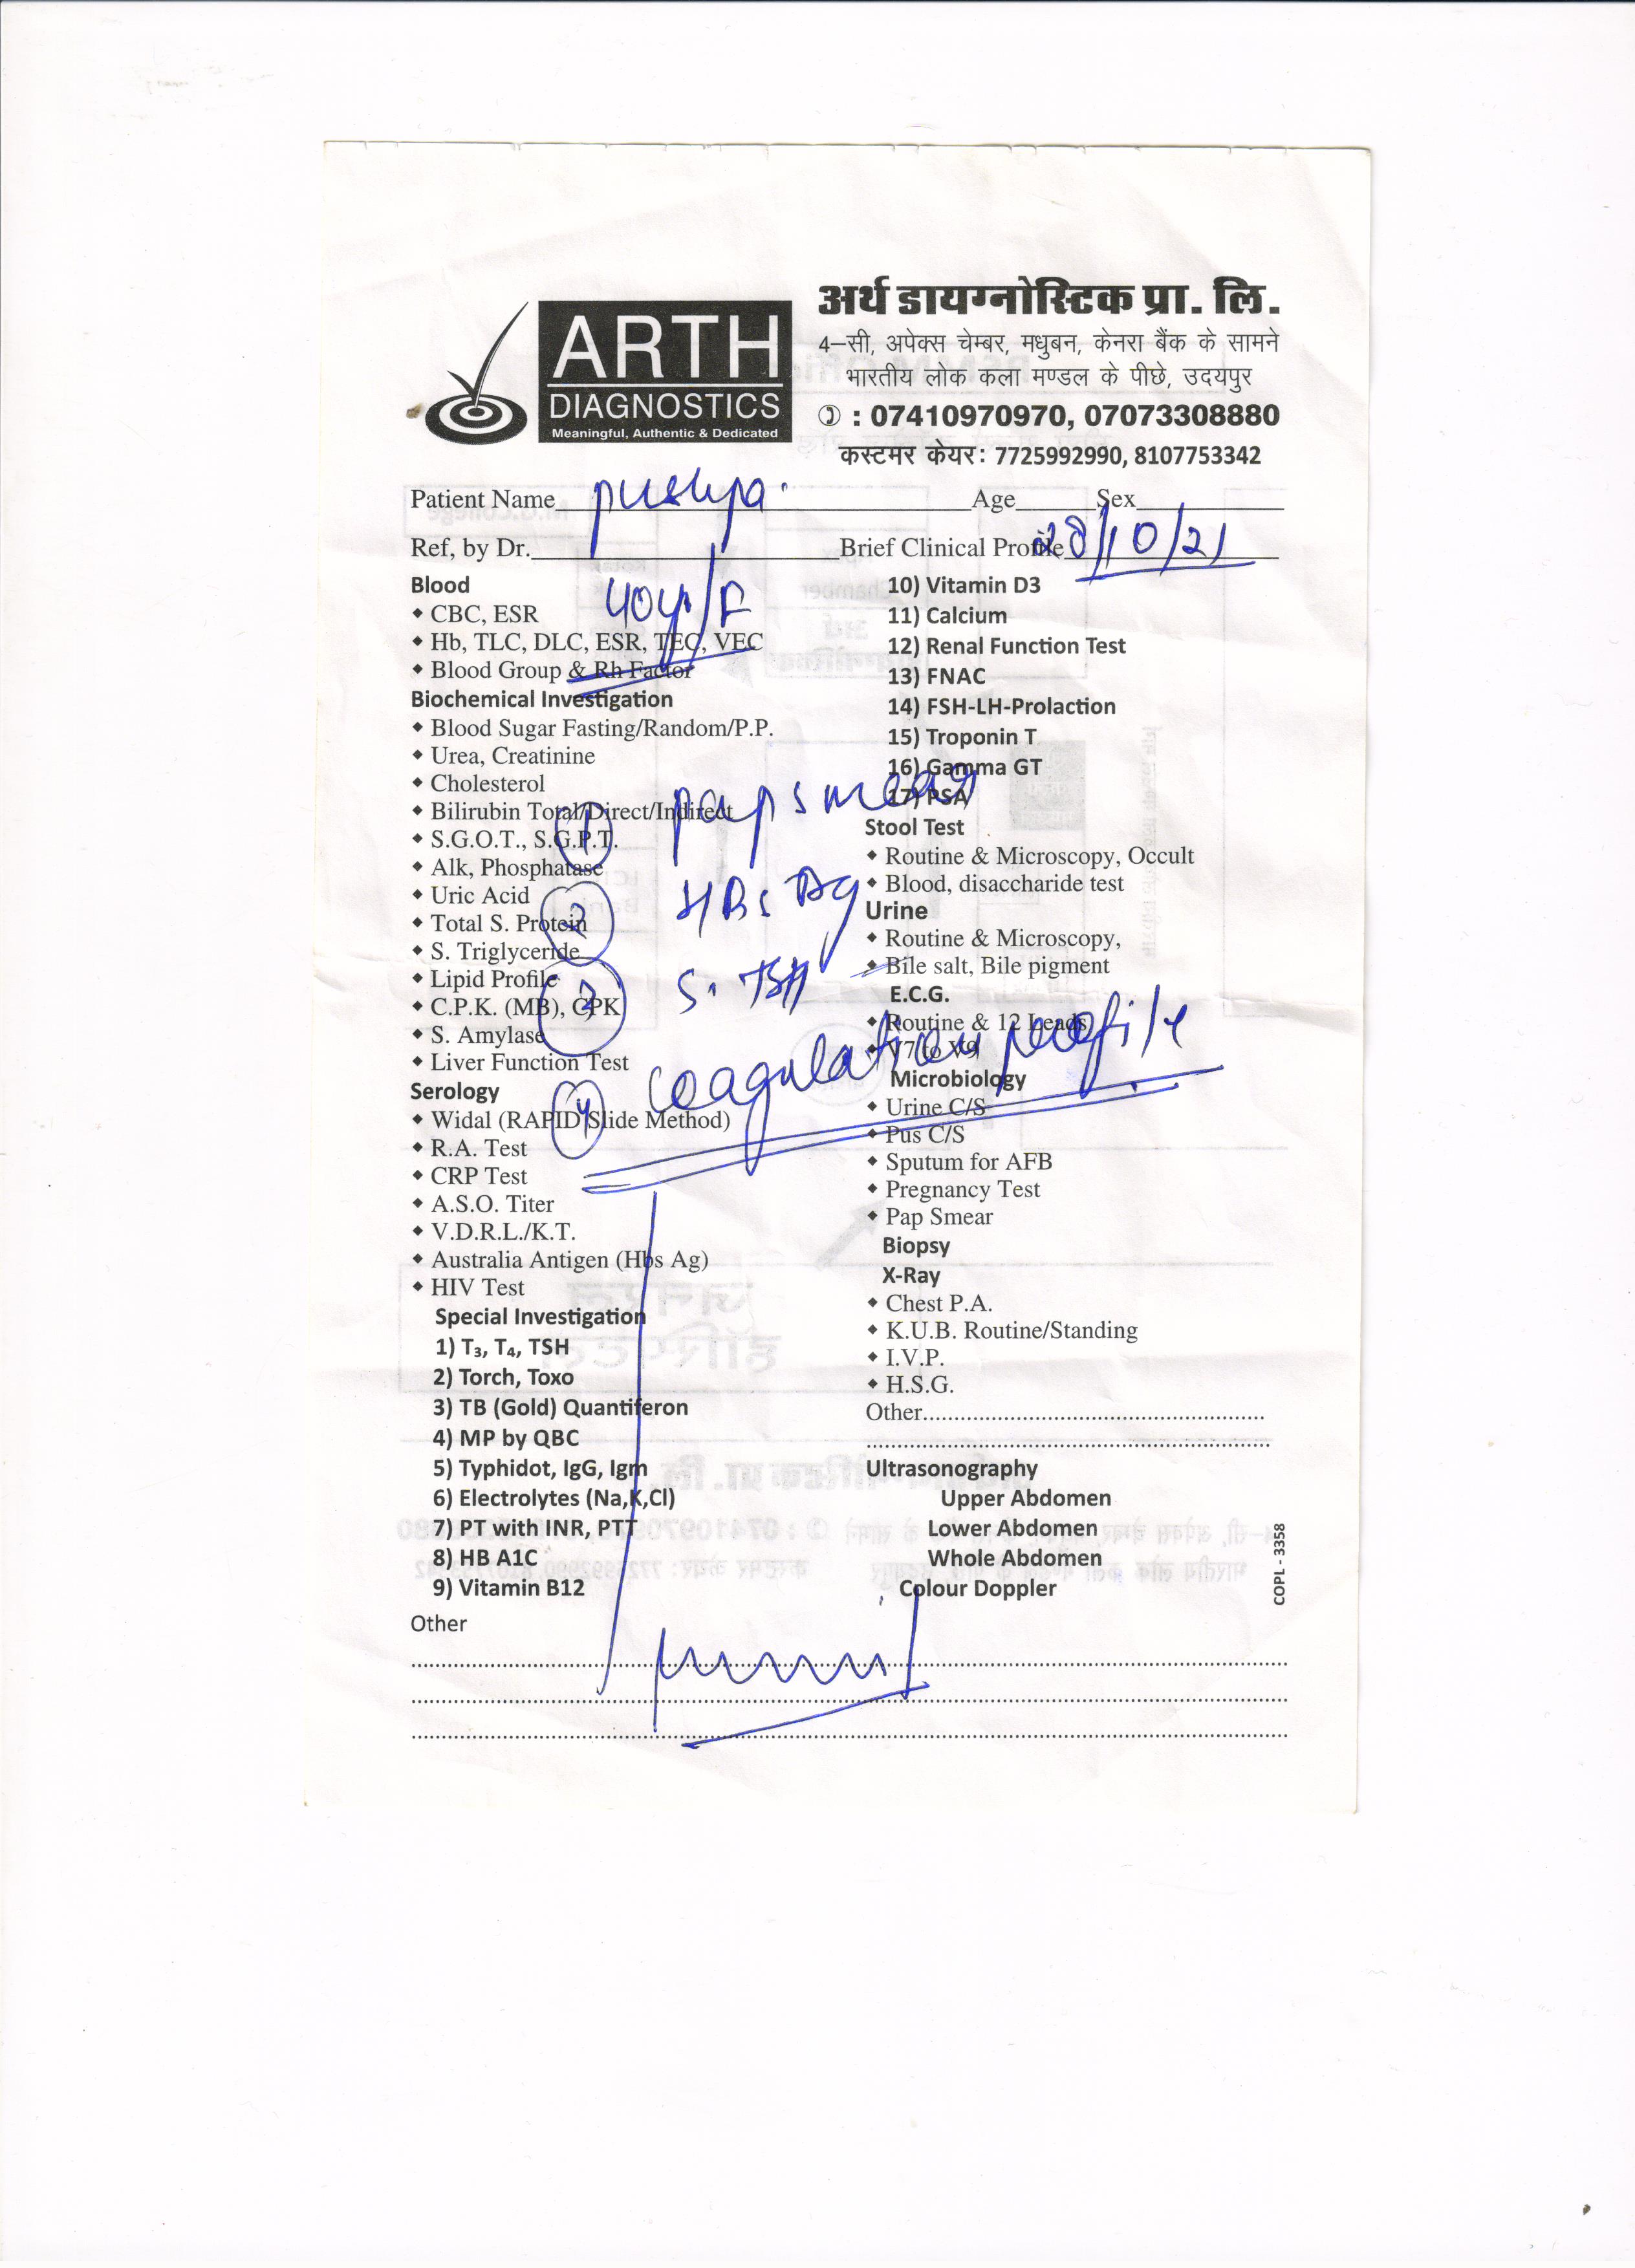 ARTH
DIAGNOSTICS
Meaningful, Authentic & Dedicated
अर्थ डायग्नोस्टिक प्रा. लि.
4–सी, अपेक्स चेम्बर, मधुबन, केनरा बैंक के सामने
भारतीय लोक कला मण्डल के पीछे, उदयपुर
✆ : 07410970970, 07073308880
कस्टमर केयर: 7725992990, 8107753342
Patient Name pushpa. Age Sex
Ref, by Dr. Brief Clinical Profile 28/10/21
40y/F
Blood
◆ CBC, ESR
◆ Hb, TLC, DLC, ESR, TEC, VEC
◆ Blood Group & Rh Factor
Biochemical Investigation
◆ Blood Sugar Fasting/Random/P.P.
◆ Urea, Creatinine
◆ Cholesterol
◆ Bilirubin Total/Direct/Indirect
◆ S.G.O.T., S.G.P.T.
◆ Alk, Phosphatase
◆ Uric Acid
◆ Total S. Protein
◆ S. Triglyceride
◆ Lipid Profile
◆ C.P.K. (MB), CPK
◆ S. Amylase
◆ Liver Function Test
Serology
◆ Widal (RAPID Slide Method)
◆ R.A. Test
◆ CRP Test
◆ A.S.O. Titer
◆ V.D.R.L./K.T.
◆ Australia Antigen (Hbs Ag)
◆ HIV Test
Special Investigation
1) T₃, T₄, TSH
2) Torch, Toxo
3) TB (Gold) Quantiferon
4) MP by QBC
5) Typhidot, IgG, Igm
6) Electrolytes (Na,K,Cl)
7) PT with INR, PTT
8) HB A1C
9) Vitamin B12
10) Vitamin D3
11) Calcium
12) Renal Function Test
13) FNAC
14) FSH-LH-Prolaction
15) Troponin T
16) Gamma GT
17) PSA
Stool Test
◆ Routine & Microscopy, Occult
◆ Blood, disaccharide test
Urine
◆ Routine & Microscopy,
◆ Bile salt, Bile pigment
E.C.G.
◆ Routine & 12 Leads
◆ V7 to V9
Microbiology
◆ Urine C/S
◆ Pus C/S
◆ Sputum for AFB
◆ Pregnancy Test
◆ Pap Smear
Biopsy
X-Ray
◆ Chest P.A.
◆ K.U.B. Routine/Standing
◆ I.V.P.
◆ H.S.G.
Other
Ultrasonography
Upper Abdomen
Lower Abdomen
Whole Abdomen
Colour Doppler
COPL - 3358
1 pap smear
2 HBs Ag
3 S. TSH
4 coagulation profile
Other